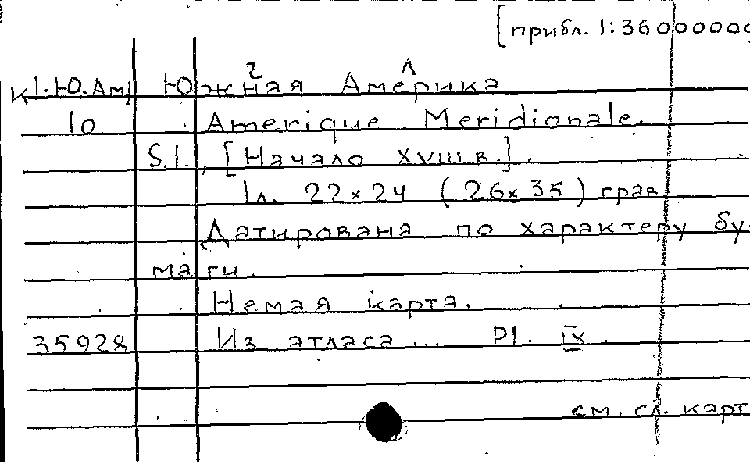 [прибл. 1:36000000
К 1.Ю.Ам Южная Америка
10 Amerique Meridionale.
S.l., [Начало XVIII в.].
1 л. 22×24 (26×35) грав
Датирована по характеру бу-
маги.
Немая карта.
35928 Из атласа... Pl. IX.
см. сл. карт